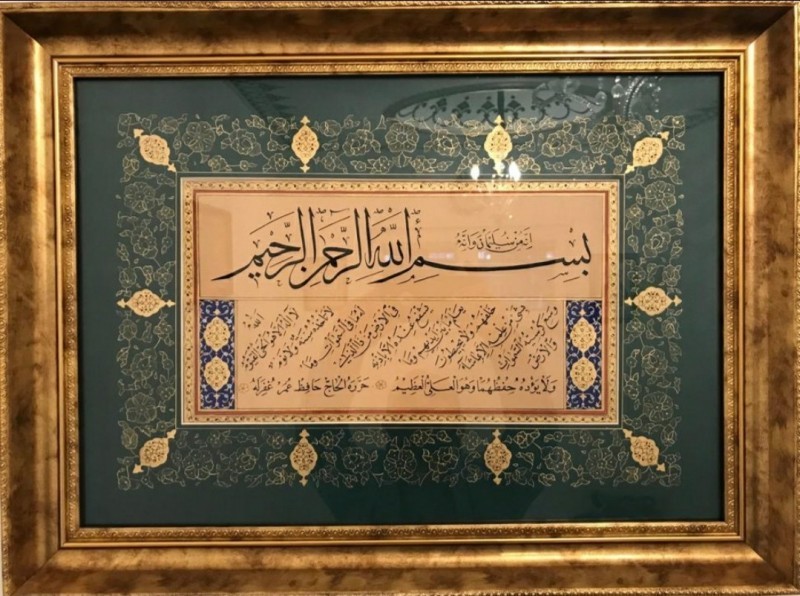 إنه من سليمان وإنه
بسم الله الرحمن الرحيم
الله
لا إله إلا هو الحي القيوم
لا تأخذه سنة ولا نوم
له ما في السموات وما
في الأرض من ذا الذي
يشفع عنده إلا بإذنه
يعلم ما بين أيديهم وما
خلفهم ولا يحيطون
بشيء من علمه إلا بما شاء
وسع كرسيه السموات
والأرض
ولا يؤده حفظهما وهو العلي العظيم حرره الحاج حافظ عمر غفر له